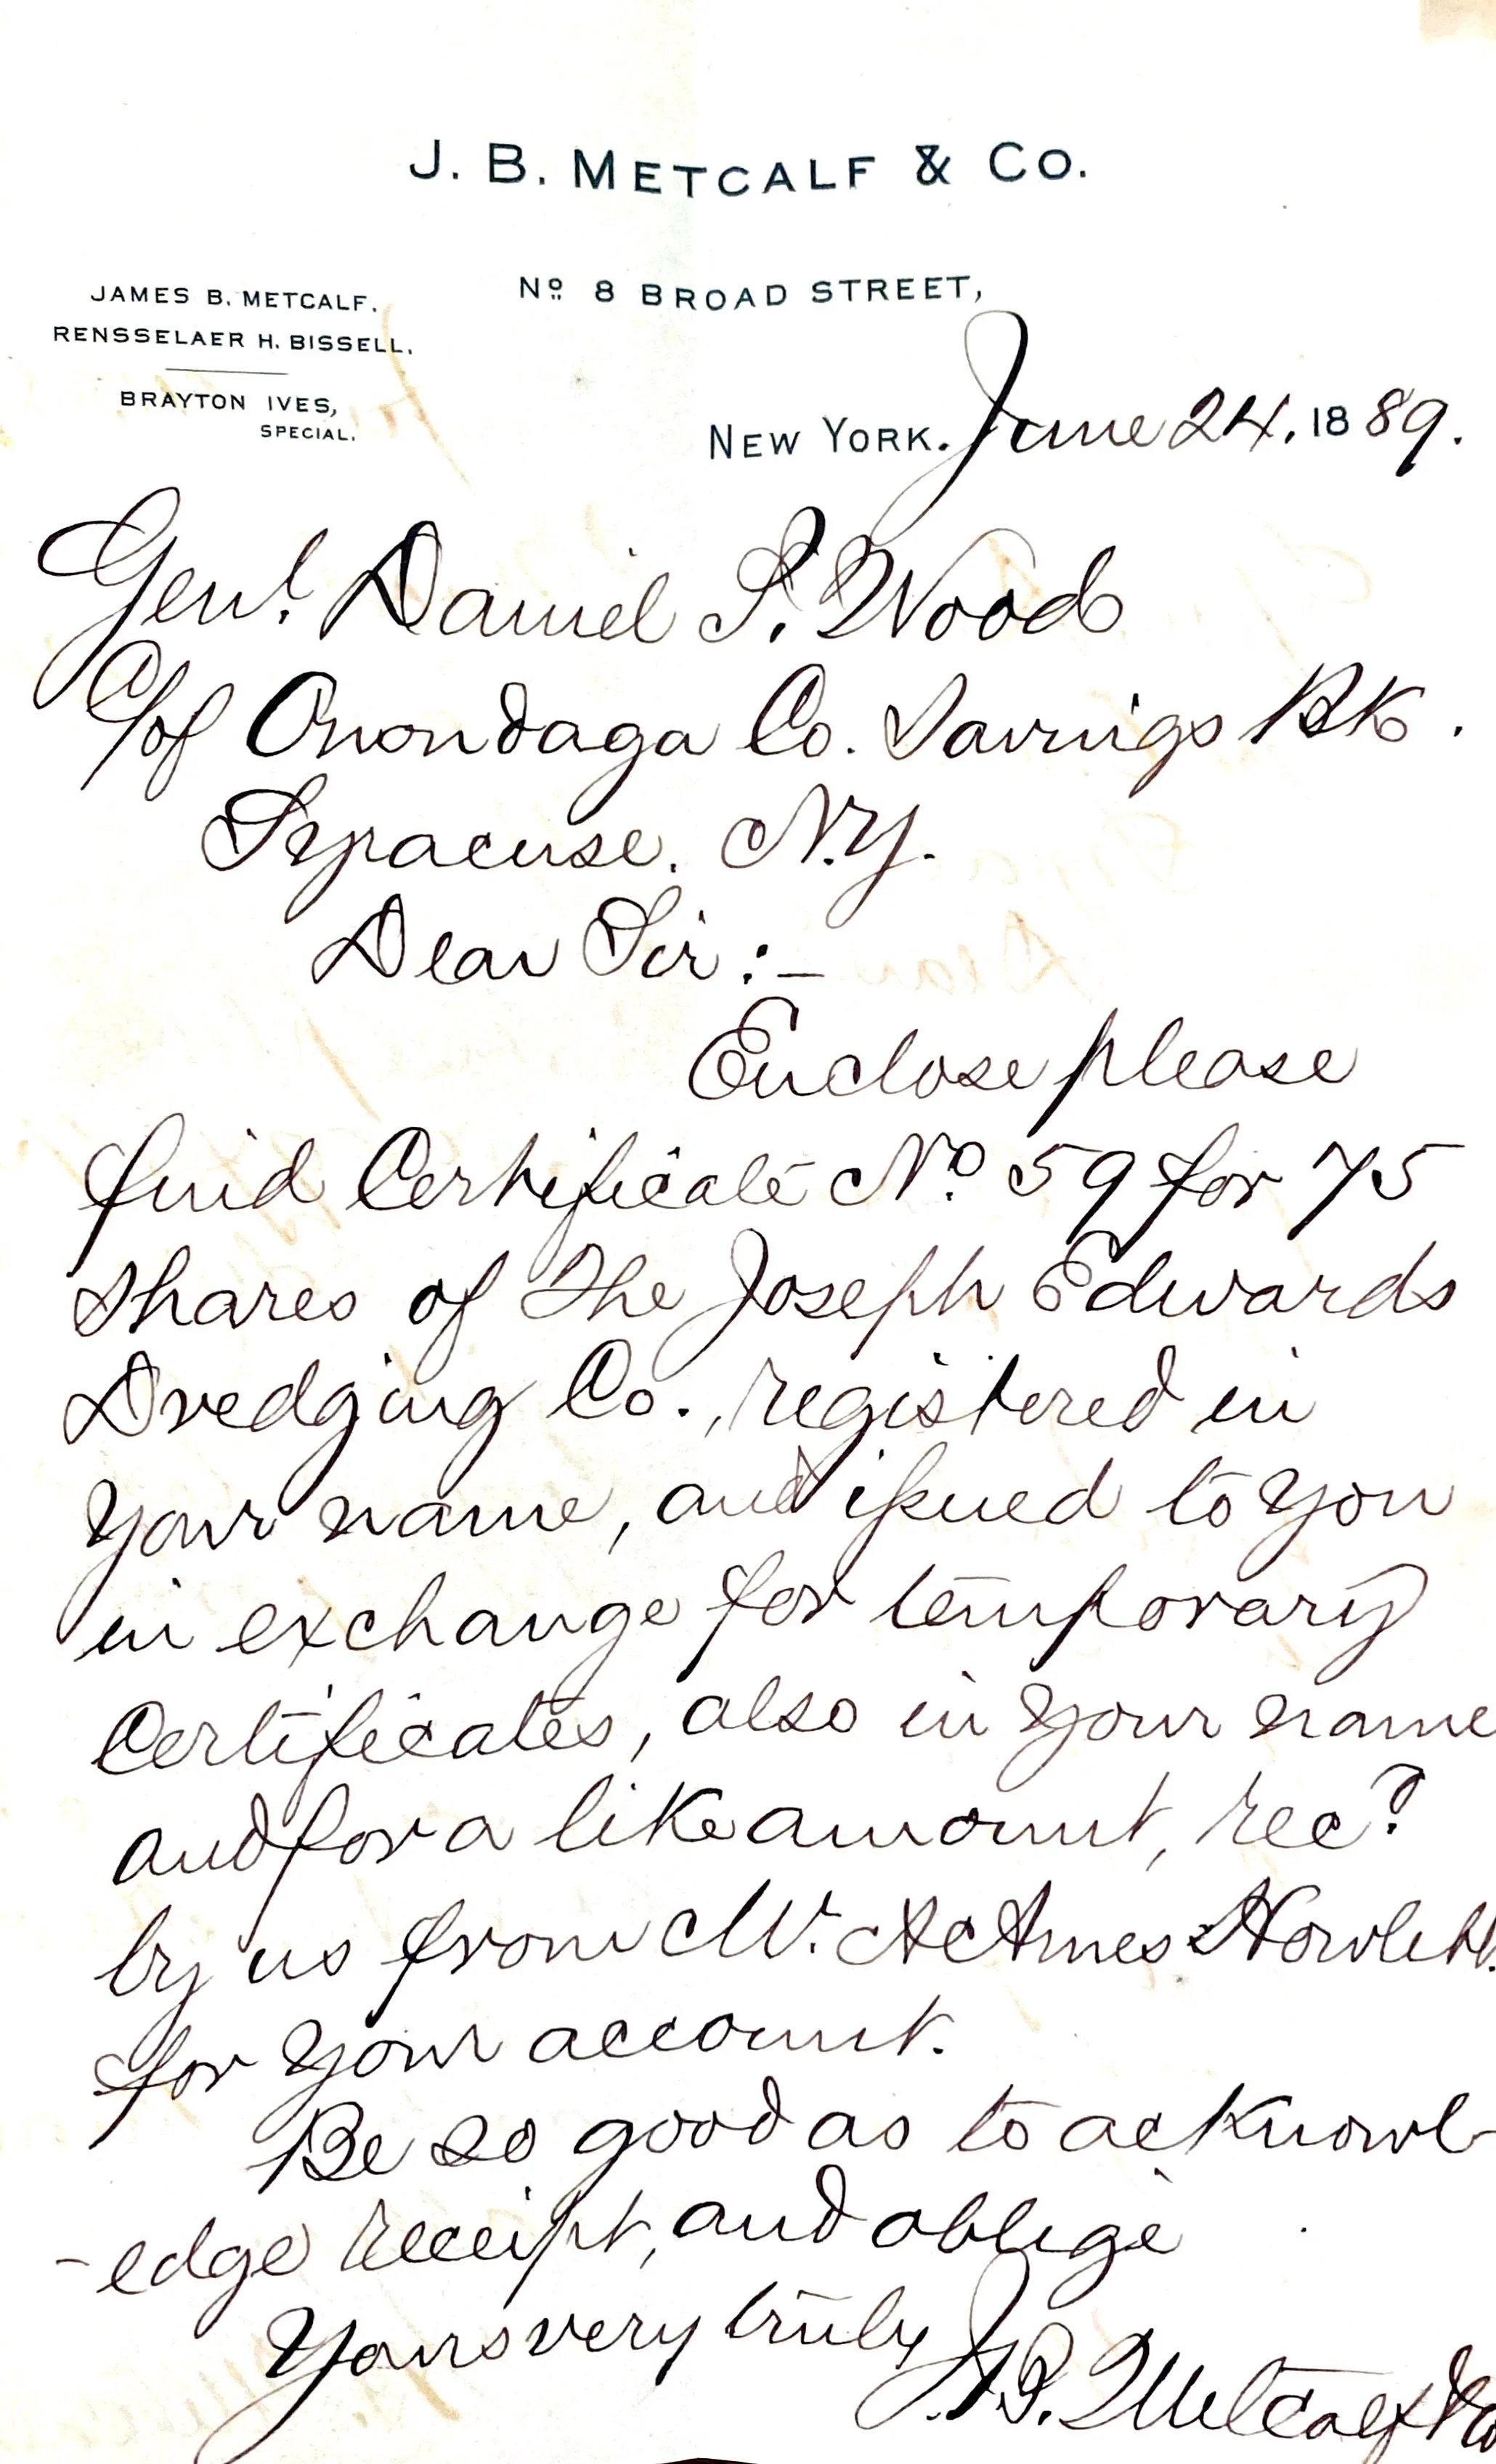 J. B. METCALF & CO.
No. 8 BROAD STREET,
JAMES B. METCALF.
RENSSELAER H. BISSELL.
BRAYTON IVES,
SPECIAL.
NEW YORK. June 24, 1889.
Genl. Daniel P. Wood
C/of Onondaga Co. Savings Bk.
Syracuse. N.Y.
Dear Sir :—
Enclose please
find Certificate No. 59 for 75
shares of The Joseph Edwards
Dredging Co., registered in
your name, and issued to you
in exchange for temporary
Certificates, also in your name
and for a like amount, recd.
by us from Mr. Ames Howlett.
for your account.
Be so good as to acknowl-
-edge receipt, and oblige
Yours very truly
J.B. Metcalf & Co